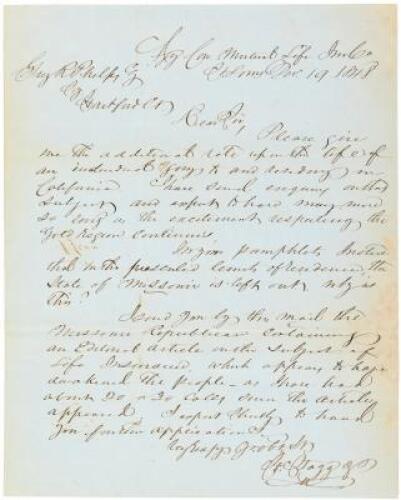 Agy. Con. Mutual Life Ins Co
St Louis Dec 19 1848
Guy R Phelps Esq
Hartford Ct
Dear Sir,
Please give
me the additional rate upon the life of
an individual going to and residing in
California I have some enquiry on that
subject and expect to have many more
so long as the excitement respecting the
Gold Region continues.
In your pamphlet I notice
that in the prescribed limits of residence, the
State of Missouri is left out. Why is
this?
I send you by this mail the
Missouri Republican containing
an Editorial article on the subject of
Life Insurance, which appears to have
awakened the people as I have had
about 20 calls since the article
appeared I expect shortly to hand
you further applications
Very Resp Yr Obt St